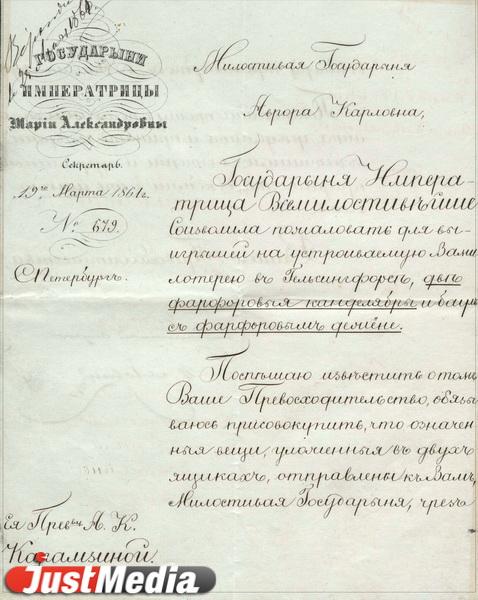 ГОСУДАРЫНИ
ИМПЕРАТРИЦЫ
Маріи Александровны
Секретарь.
19го Марта 1864 г.
№ 679.
С.Петербургъ.
Милостивая Государыня
Аврора Карловна,
Государыня Импера-
трица Всемилостивѣйше
Соизволила пожаловать для вы-
игрышей на устроиваемую Вами
лотерею въ Гельсингфорсѣ, двѣ
фарфоровыя канделябры и
съ фарфоровымъ
Поспѣшаю извѣстить о томъ
Ваше Превосходительство, обязы-
ваюсь присовокупить, что означен-
ныя вещи, уложенныя въ двухъ
ящикахъ, отправлены къ Вамъ,
Милостивая Государыня, чрезъ
Ея Прев-ву А. К.
Карамзиной.
JustMedia